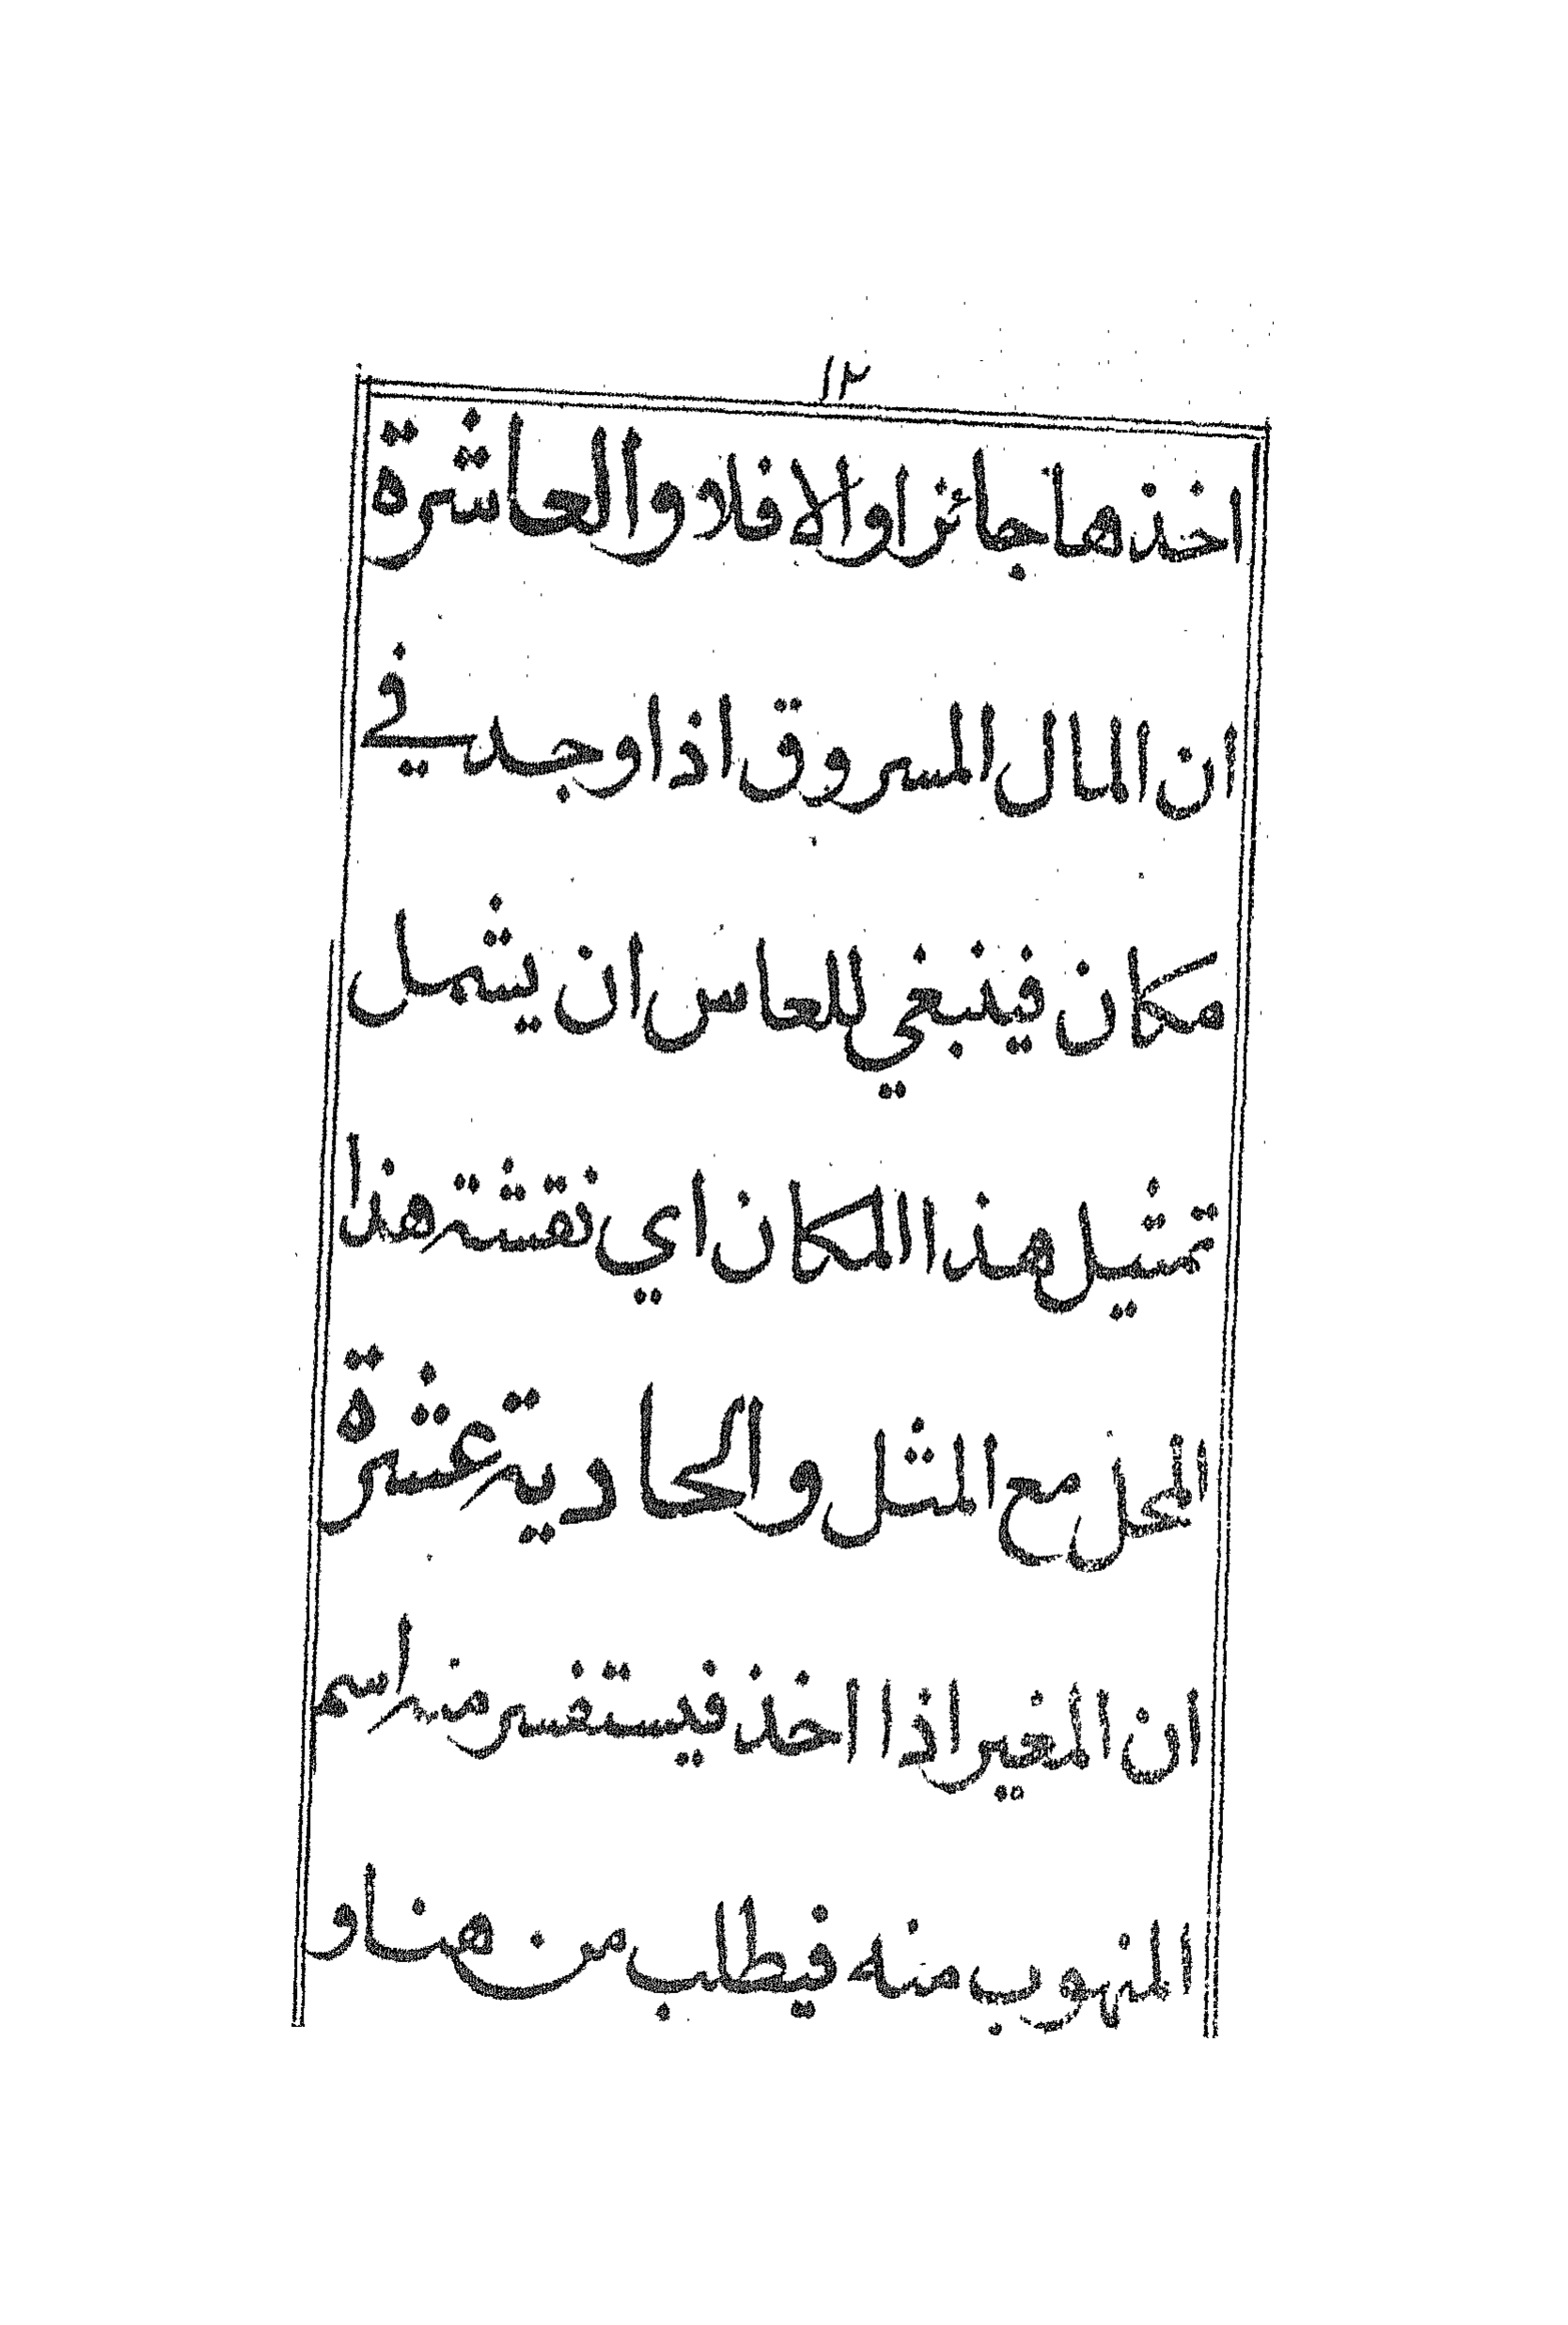 ١٢
اخذها جائزا والا فلا والعاشرة
ان المال المسروق اذا وجد في
مكان فينبغي للعاس ان يشمل
تمثيل هذا المكان اي نقشته هذا
المحل مع المثل والحادية عشرة
ان المغير اذا اخذ فيستفسر منه اسم
المنهوب منه فيطلب من هنا و